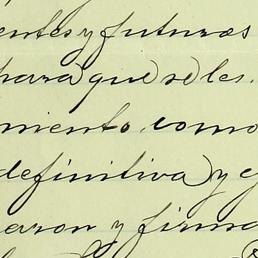 entes y futuras
para que se les
miento, como
definitiva y e
aron y firma